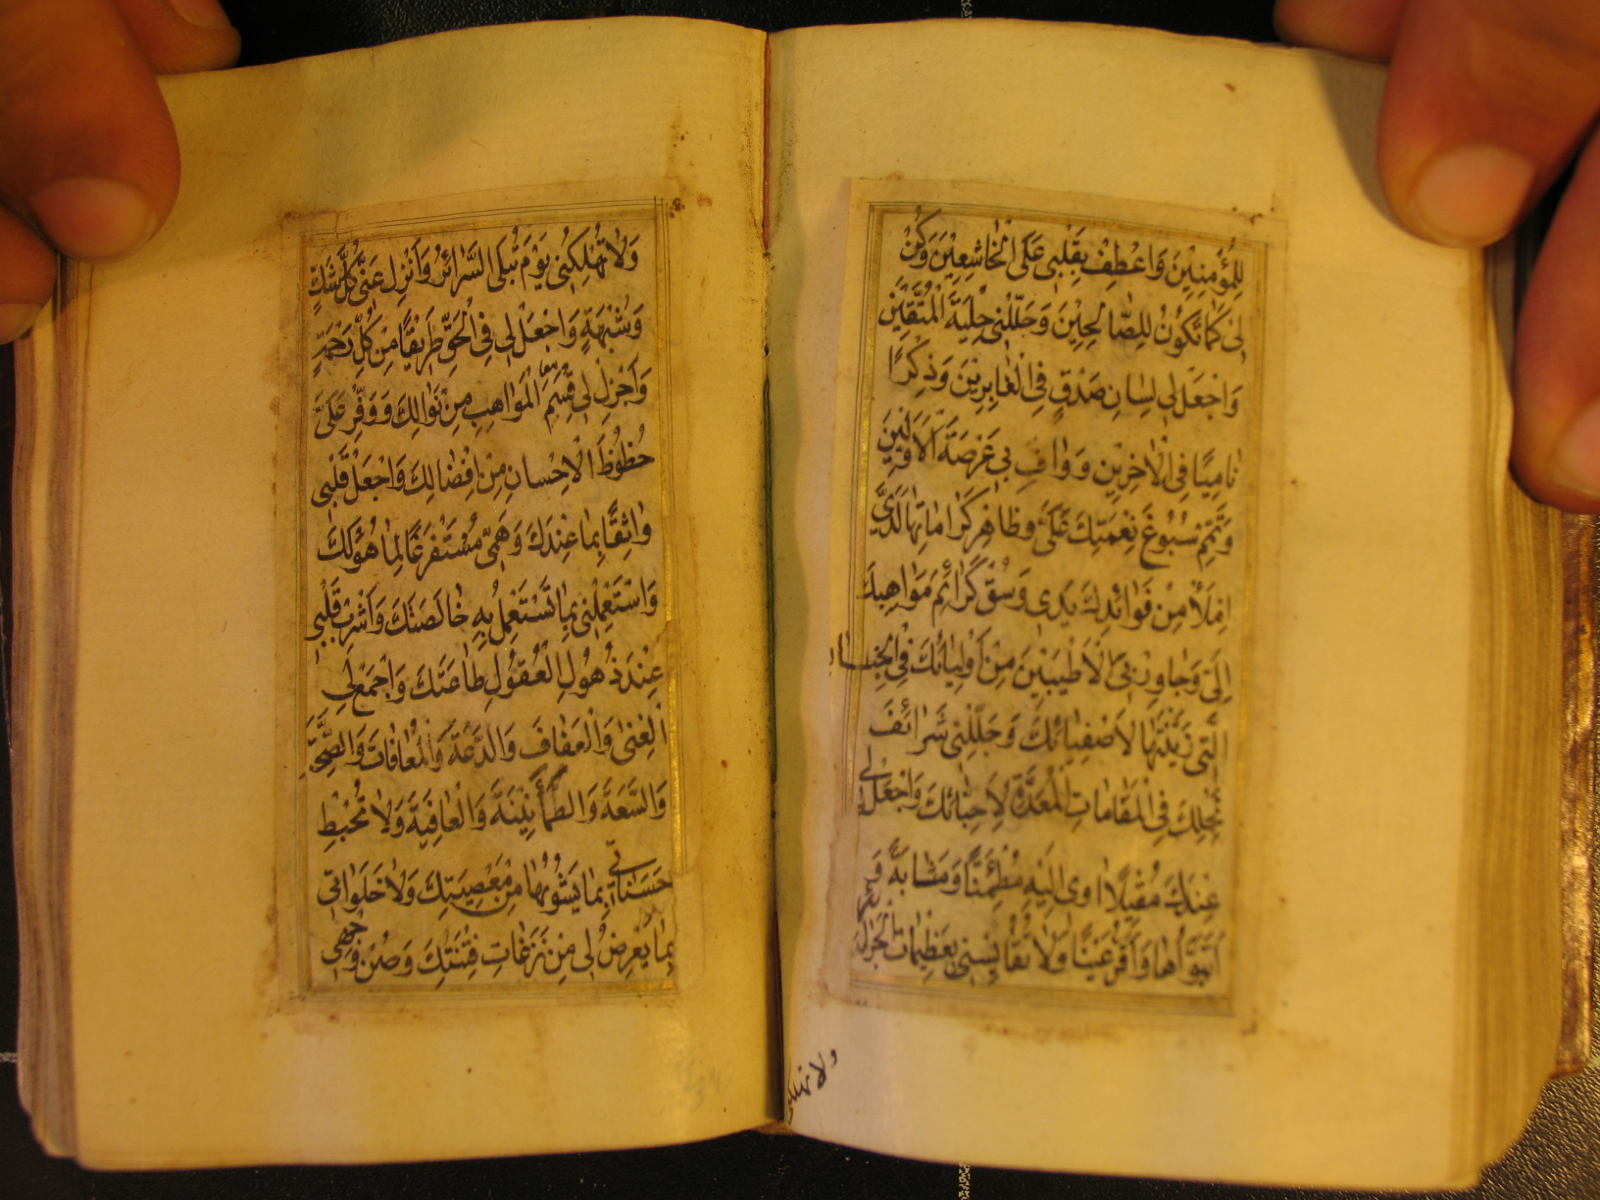 لِلْمُؤْمِنِينَ وَاعْطِفْ بِقَلْبِي عَلَى الْخَاشِعِينَ وَكُنْ
لِي كَمَا تَكُونُ لِلصَّالِحِينَ وَحَلِّنِي حِلْيَةَ الْمُتَّقِينَ
وَاجْعَلْ لِي لِسَانَ صِدْقٍ فِي الْغَابِرِينَ وَذِكْرًا
نَامِيًا فِي الْآخِرِينَ وَوَافِ بِي عَرْصَةَ الْأَوَّلِينَ
وَتَمِّمْ سُبُوغَ نِعْمَتِكَ عَلَيَّ وَظَاهِرْ كَرَامَاتِهَا لَدَيَّ
اِمْلَأْ مِنْ فَوَائِدِكَ يَدِي وَسُقْ كَرَائِمَ مَوَاهِبِكَ
إِلَيَّ وَجَاوِرْ بِيَ الْأَطْيَبِينَ مِنْ أَوْلِيَائِكَ فِي الْجِنَانِ
الَّتِي زَيَّنْتَهَا لِأَصْفِيَائِكَ وَجَلِّلْنِي شَرَائِفَ
نِحَلِكَ فِي الْمَقَامَاتِ الْمُعَدَّةِ لِأَحِبَّائِكَ وَاجْعَلْ لِي
عِنْدَكَ مَقِيلًا اٰوِي إِلَيْهِ مُطْمَئِنًّا وَمَثَابَةً
أَتَبَوَّأُهَا وَأَقَرُّ عَيْنًا وَلَا تُقَايِسْنِي بِعَظِيمَاتِ الْجَرَائِرِ
ولا تهلكني
وَلَا تُهْلِكْنِي يَوْمَ تُبْلَى السَّرَائِرُ وَأَزِلْ عَنِّي كُلَّ شَكٍّ
وَشُبْهَةٍ وَاجْعَلْ لِي فِي الْحَقِّ طَرِيقًا مِنْ كُلِّ رَحْمَةٍ
وَأَجْزِلْ لِي قِسَمَ الْمَوَاهِبِ مِنْ نَوَالِكَ وَوَفِّرْ عَلَيَّ
حُظُوظَ الْإِحْسَانِ مِنْ إِفْضَالِكَ وَاجْعَلْ قَلْبِي
وَاثِقًا بِمَا عِنْدَكَ وَهَمِّي مُسْتَفْرَغًا لِمَا هُوَ لَكَ
وَاسْتَعْمِلْنِي بِمَا تَسْتَعْمِلُ بِهِ خَالِصَتَكَ وَأَشْرِبْ قَلْبِي
عِنْدَ ذُهُولِ الْعُقُولِ طَاعَتَكَ وَاجْمَعْ لِي
الْغِنَى وَالْعَفَافَ وَالدَّعَةَ وَالْمُعَافَاةَ وَالصِّحَّةَ
وَالسَّعَةَ وَالطُّمَأْنِينَةَ وَالْعَافِيَةَ وَلَا تُحْبِطْ
حَسَنَاتِي بِمَا يَشُوبُهَا مِنْ مَعْصِيَتِكَ وَلَا خَلَوَاتِي
بِمَا يَعْرِضُ لِي مِنْ نَزَغَاتِ فِتْنَتِكَ وَصُنْ وَجْهِي